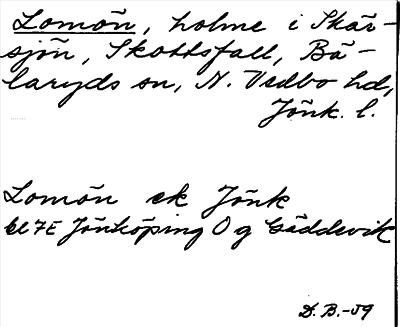 Lomön, holme i Skär-
sjön, Skottsfall, Bä-
laryds sn, N. Vedbo hd,
Jönk. l.
Lomön ek Jönk
bl 7E Jönköping O g Gäddevik
D. B.-59